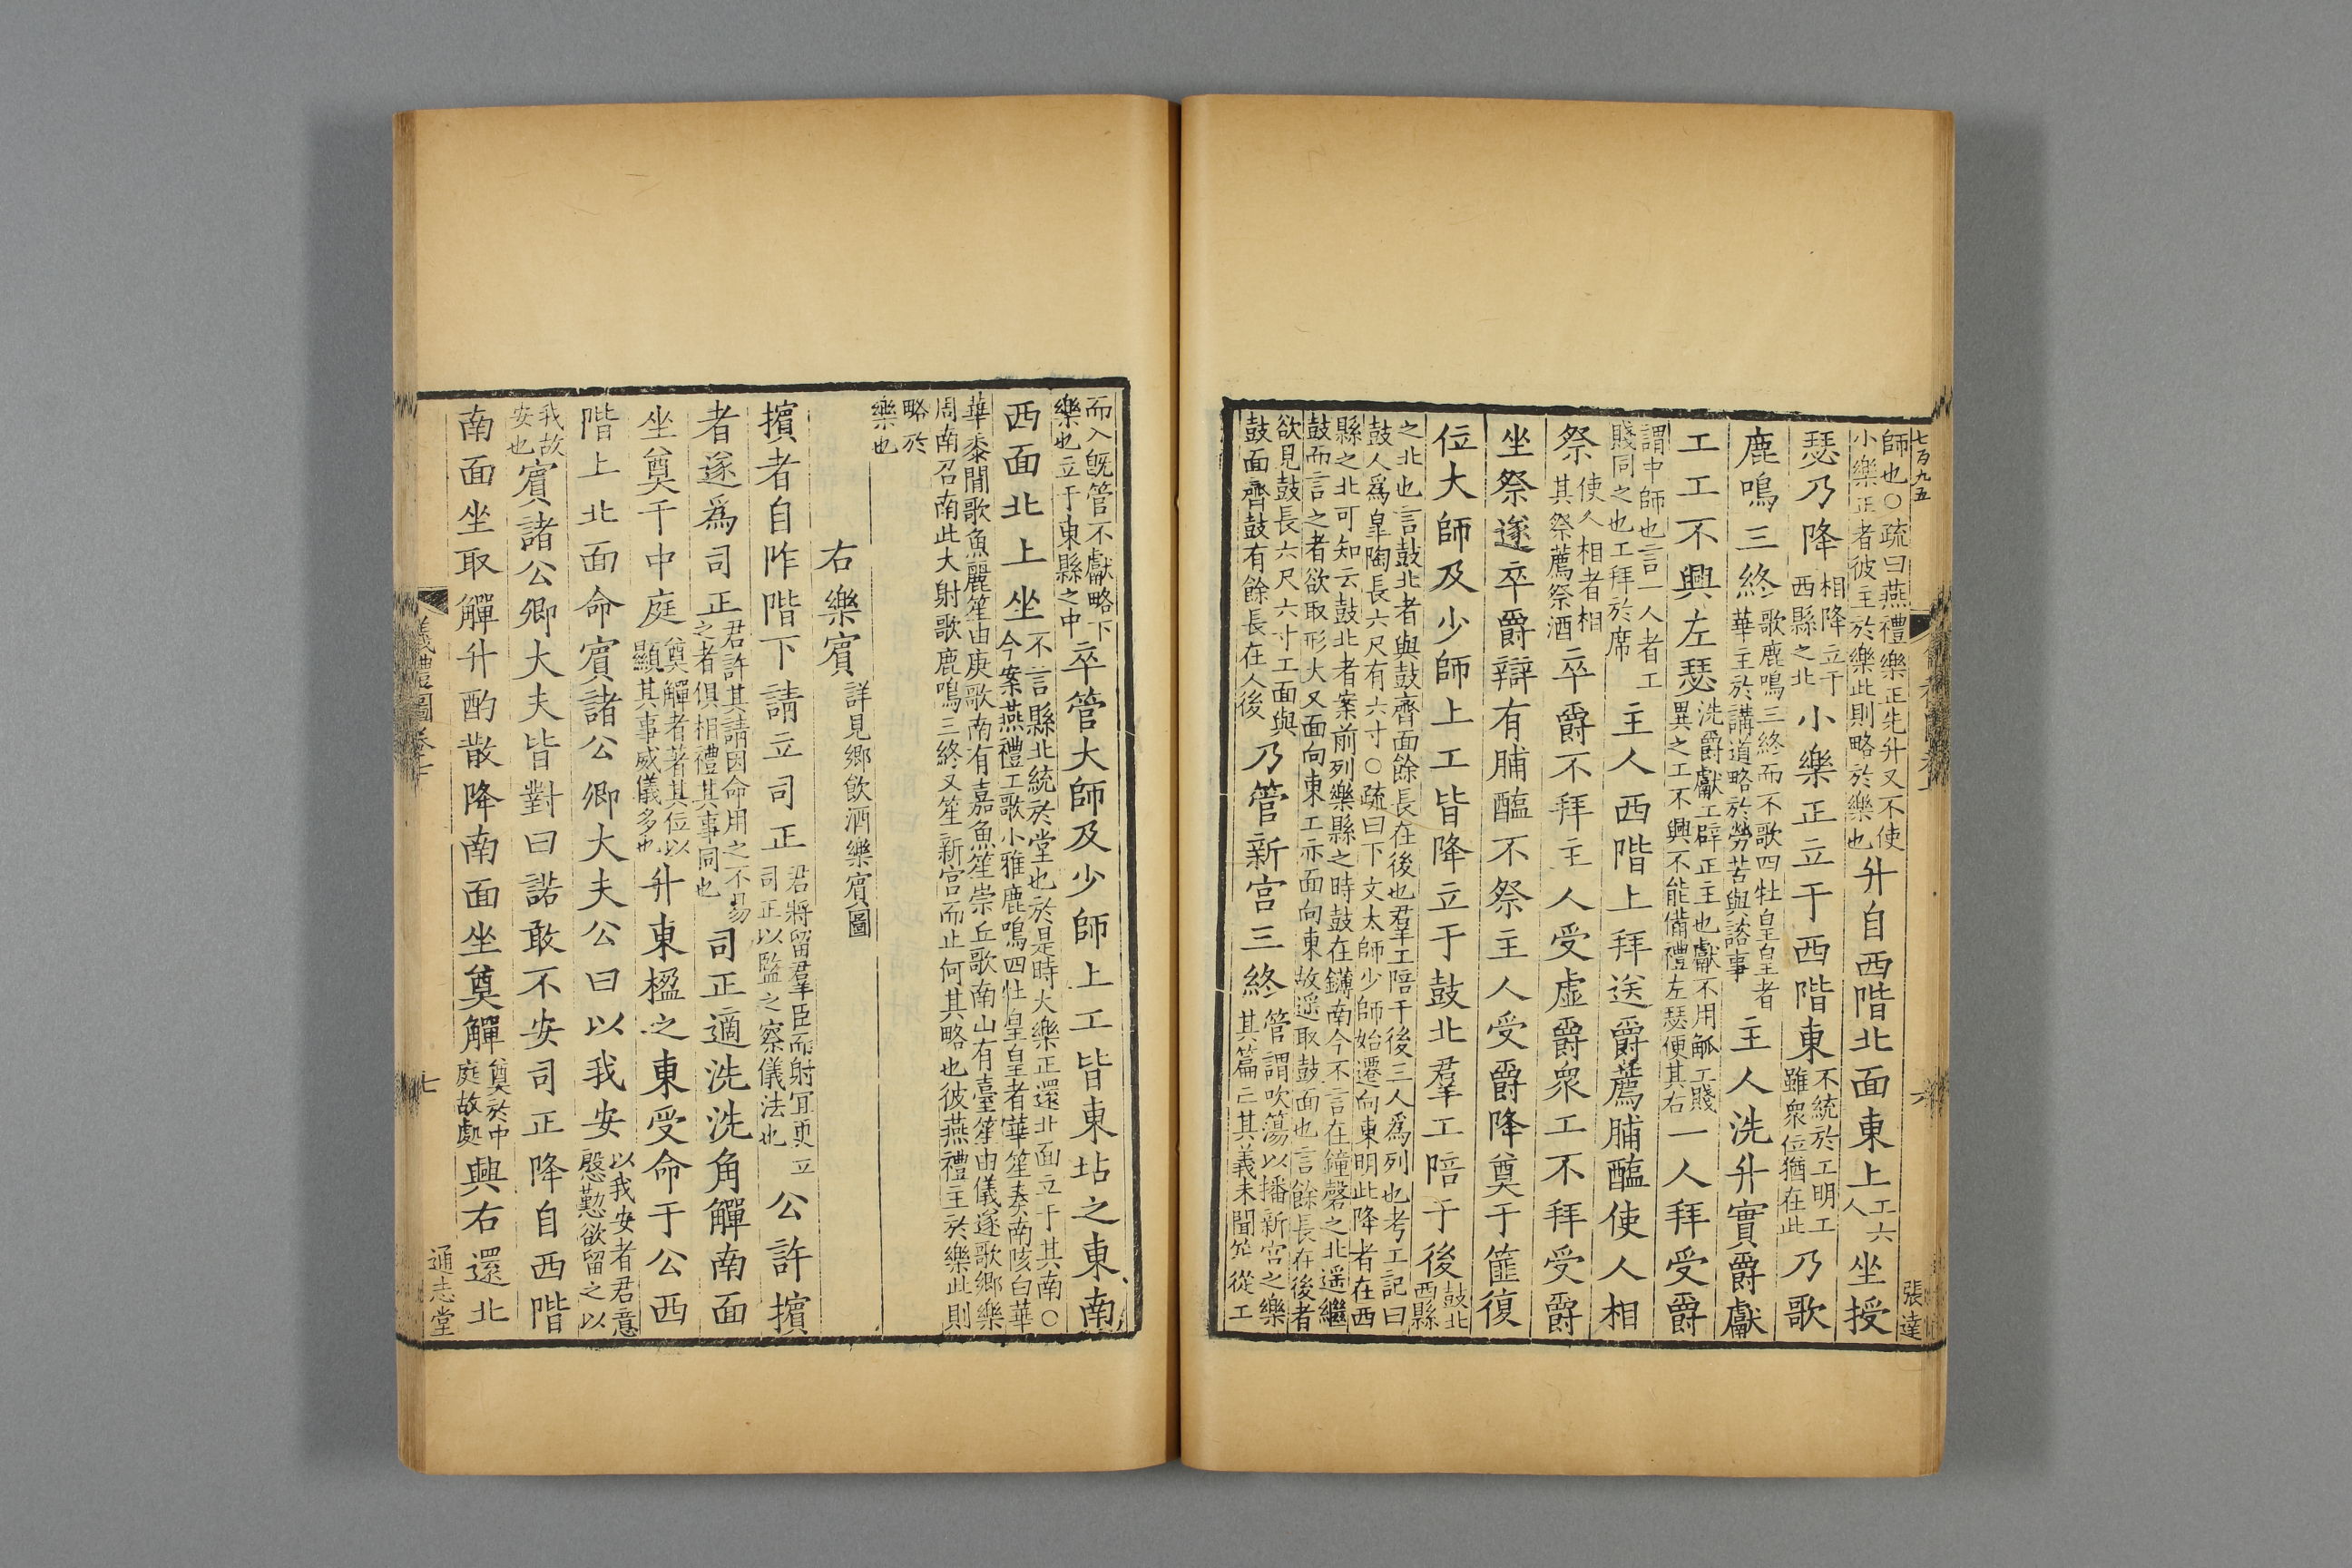 七百九五
師也○疏曰燕禮樂正先升又不使
小樂正者彼主於樂此則略於樂也
升自西階北面東上
工六
人
坐授
瑟乃降
相降立于
西縣之北
小樂正立于西階東
不統於工明工
雖衆位猶在此
乃歌
鹿鳴三終
歌鹿鳴三終而不歌四牡皇皇者
華主於講道略於勞苦與諮事
主人洗升實爵獻
工工不興左瑟
洗爵獻工辟正主也獻不用觚工賤
異之工不興不能備禮左瑟便其右
一人拜受爵
謂中師也言一人者工
賤同之也工拜於席
主人西階上拜送爵薦脯醢使人相
祭
使人相者相
其祭薦祭酒
卒爵不拜主人受虛爵衆工不拜受爵
坐祭遂卒爵辯有脯醢不祭主人受爵降奠于篚復
位大師及少師上工皆降立于鼓北羣工陪于後
鼓北
西縣
之北也言鼓北者與鼓齊面餘長在後也羣工陪于後三人爲列也考工記曰
鼓人爲臯陶長六尺有六寸○疏曰下文太師少師始遷向東明此降者在西
縣之北可知云鼓北者案前列樂縣之時鼓在鑮南今不言在鐘磬之北遥繼
鼓而言之者欲取形大又面向東工亦面向東故遥取鼓面也言餘長在後者
欲見鼓長六尺六寸工面與
鼓面齊鼓有餘長在人後
乃管新宫三終
管謂吹簜以播新宫之樂
其篇亡其義未聞笙從工
六
張達
而入既管不獻略下
樂也立于東縣之中
卒管大師及少師上工皆東坫之東南
西面北上坐
不言縣北統於堂也於是時大樂正還北面立于其南○
今案燕禮工歌小雅鹿鳴四牡皇皇者華笙奏南陔白華
華黍閒歌魚麗笙由庚歌南有嘉魚笙崇丘歌南山有臺笙由儀遂歌鄉樂
周南召南此大射歌鹿鳴三終又笙新宫而止何其略也彼燕禮主於樂此則
略於
樂也
右樂賓
詳見鄉飲酒樂賓圖
擯者自阼階下請立司正
君將留羣臣而射宜更立
司正以監之察儀法也
公許擯
者遂爲司正
君許其請因命用之不易
之者俱相禮其事同也
司正適洗洗角觶南面
坐奠于中庭
奠觶者著其位以
顯其事威儀多也
升東楹之東受命于公西
階上北面命賓諸公卿大夫公曰以我安
以我安者君意
慇懃欲留之以
我故
安也
賓諸公卿大夫皆對曰諾敢不安司正降自西階
南面坐取觶升酌散降南面坐奠觶
奠於中
庭故處
興右還北
儀禮圖
七
通志堂